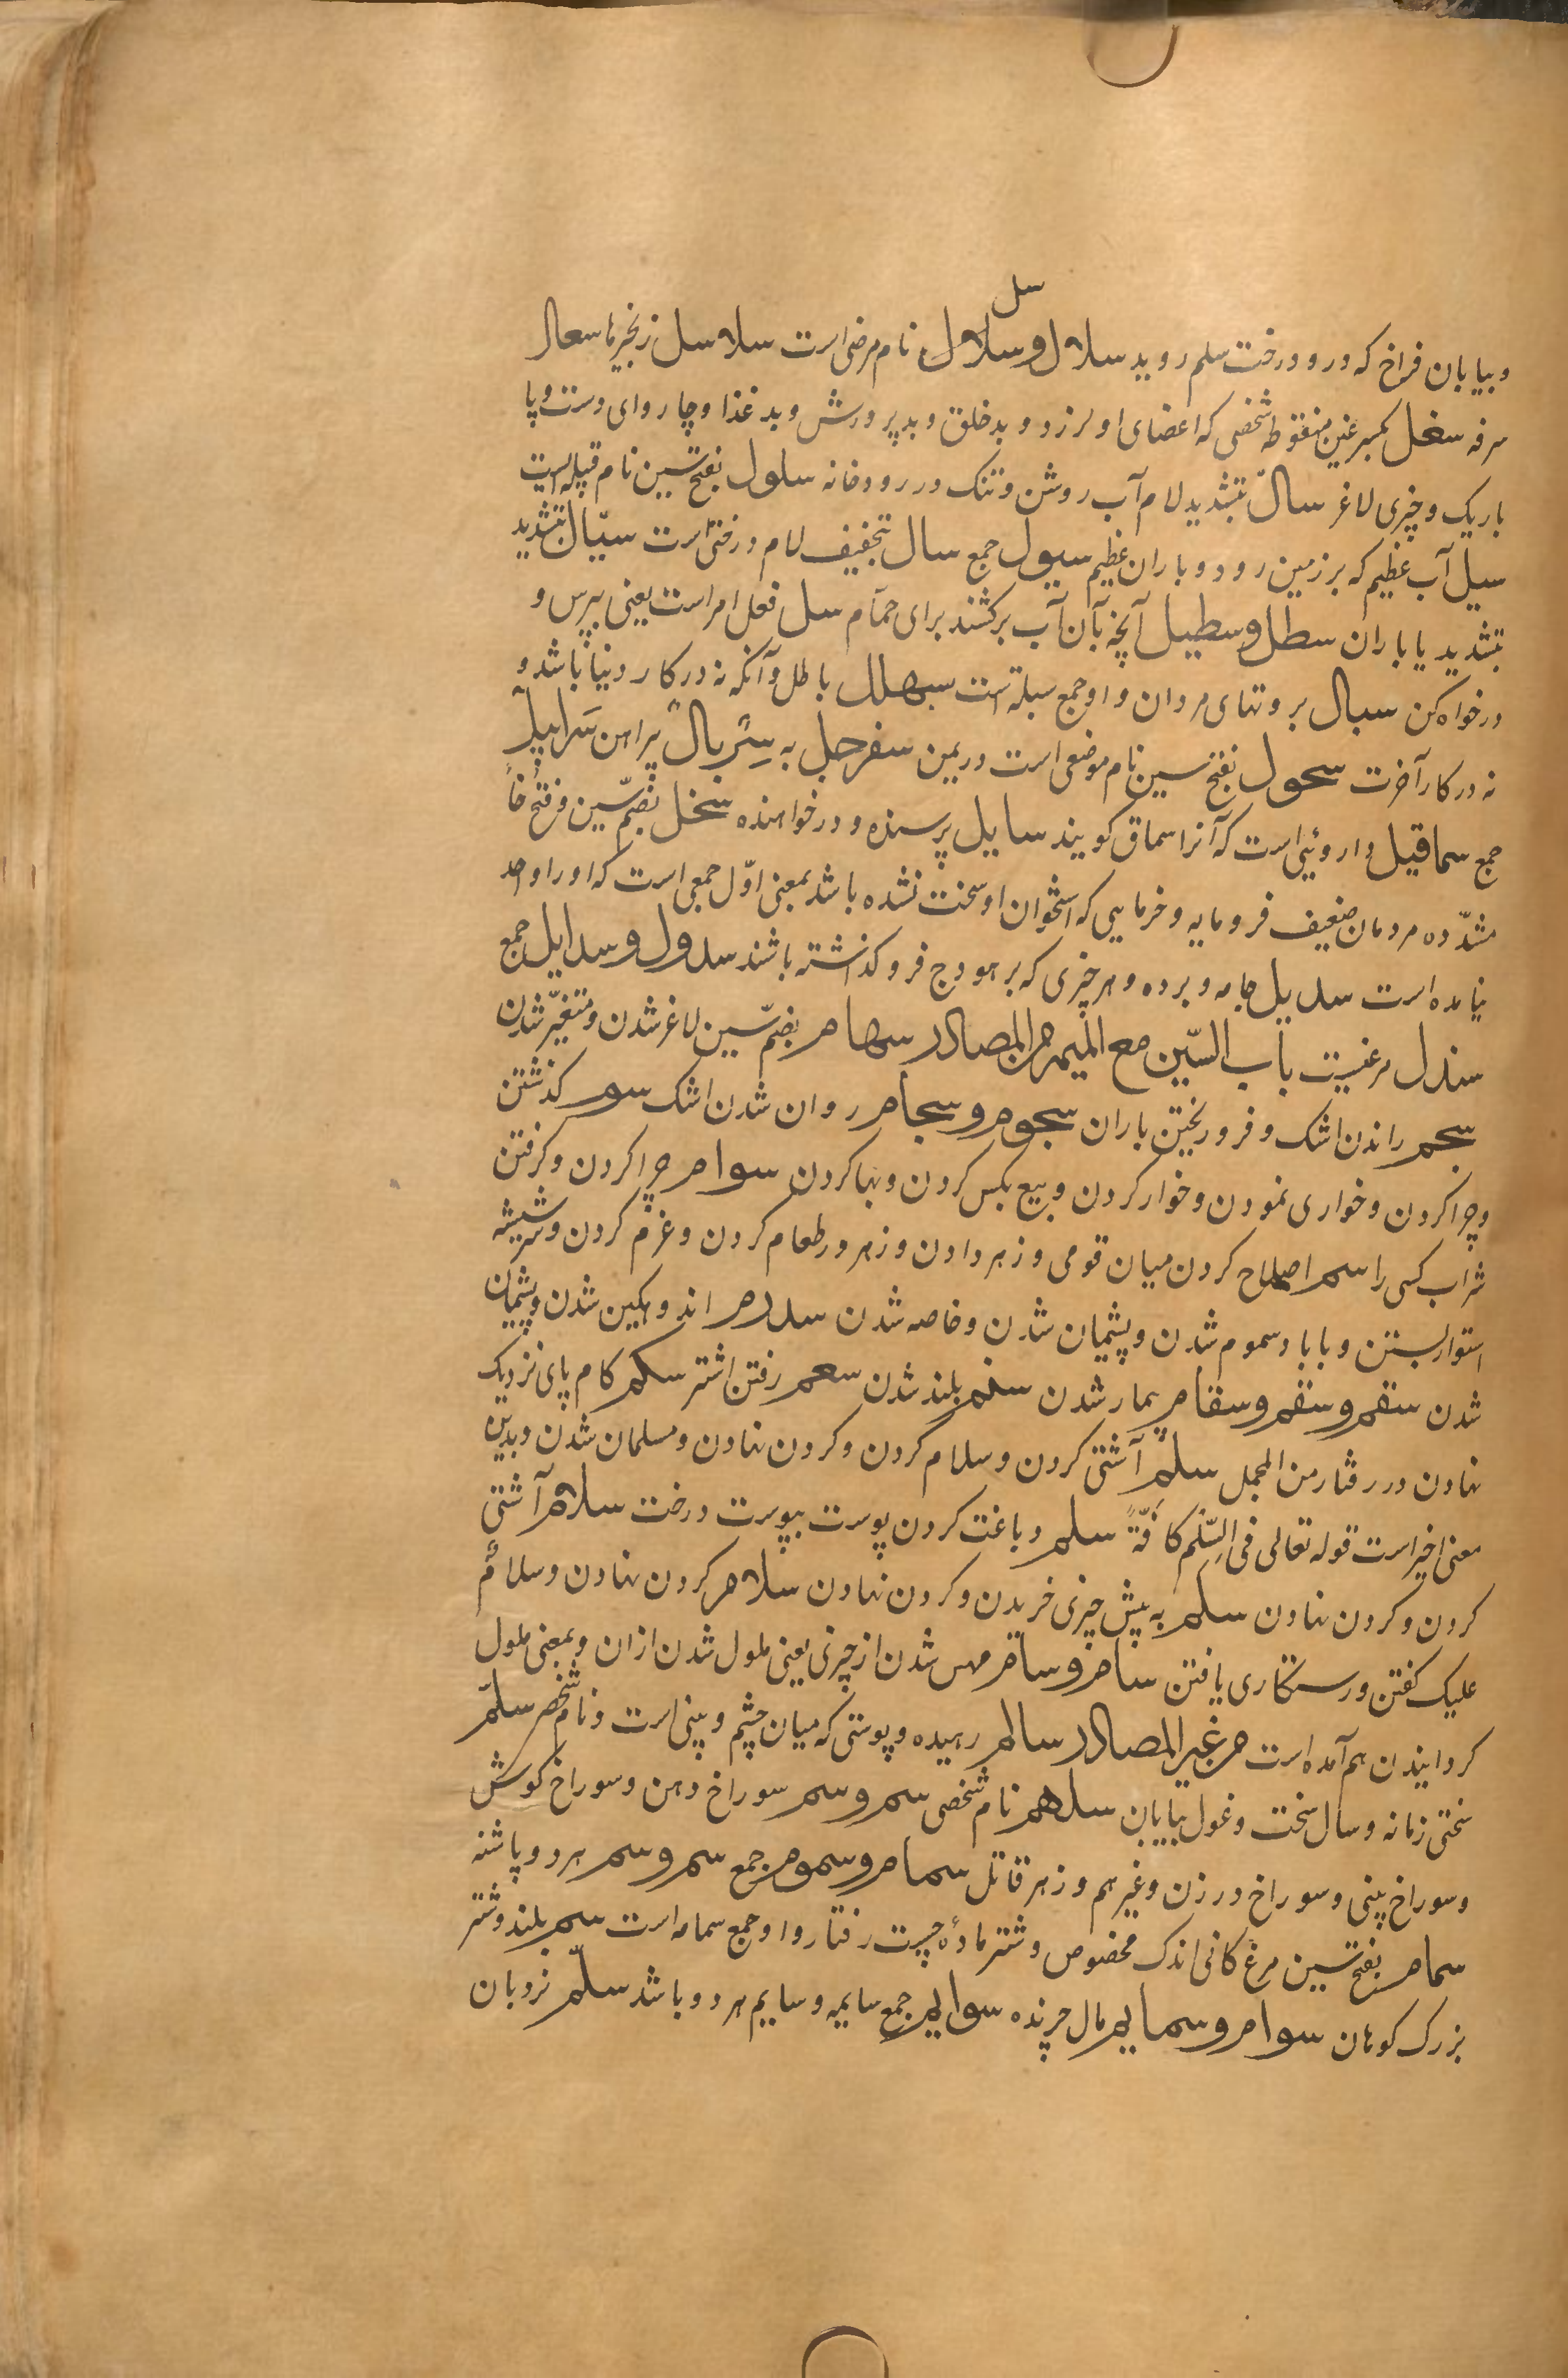 سل
و بیابان فراخ که درو درخت سلم روید سلال و سلال نام مرضی است سلاسل زنجیرها سعال
سرفه سغل بکسر غین منقوطه شخصی که اعضای او لرزد و بد خلق و بد پرورش و بد غذا و چاروای دست و پا
باریک و چیزی لاغر سالّ بتشدید لام آب روشن و تنک در رودخانه سلول بفتح سین نام قبیله است
سیل آب عظیم که بر زمین رود و باران عظیم سیول جمع سال بتخفیف لام درختی است سیّال بتشدید
بتشدید یا باران سطل و سطیل آنچه بآن آب برکشند برای حمّام سل فعل امر است یعنی بپرس و
درخواه کن سبال بروتهای مردان و او جمع سبلة است سبهلل باطل و آنکه نه در کار دنیا باشد و
نه در کار آخرت سحول بفتح سین نام موضعی است در یمن سفرجل به سِرْبالٌ پیراهن سَرابیلُ
جمع سماقیل داروئیی است که آنرا سماق کویند سایل پرسنده و درخواهنده سخل بضمّ سین و فتح خاً
مشدّده مردمان ضعیف فرومایه و خرمایی که استخوان او سخت نشده باشد بمعنی اوّل جمعی است که او را واحد
نیامده است سدیل جامه و برده و هر چیزی که بر هودج فرو کذاشته باشند سدول و سدایل جمع
سندل مرغیست باب السّین مع المیم من المصادر سهام بضمّ سین لاغر شدن و متغیّر شدن
سجم راندن اشک و فرو ریختن باران سجوم و سجام روان شدن اشک سوم کذشتن
و چرا کردن و خواری نمودن و خوار کردن و بیع بکس کردن و بها کردن سوام چرا کردن و کرفتن
شراب کسی را سم اصلاح کردن میان قومی و زهر دادن و زهر در طعام کردن و عزم کردن و سر شیشه
استوار بستن و با باد سموم شدن و پشیمان شدن و خاصه شدن سدم اندوهکین شدن و پشیمان
شدن سقم و سقم و سقام بیمار شدن سنم بلند شدن سعم رفتن اشتر سکم کام پای نزدیک
نهادن در رفتار من المجمل سلمٌ آشتی کردن و سلام کردن و کردن نهادن و مسلمان شدن و بدین
معنی اخیر است قوله تعالی فی السِّلْم کافّةً سلم دباغت کردن پوست بپوست درخت سلام آشتی
کردن و کردن نهادن سلم به پیش چیزی خریدن و کردن نهادن سلام کردن نهادن و سلامٌ
علیک کفتن و رستکاری یافتن سام و سام مهس شدن از چیزی یعنی ملول شدن ازان و بمعنی ملول
کردانیدن هم آمده است من غیر المصادر سالم رهیده و پوستی که میان چشم و بینی است و نام شخص سلّم
سختی زمانه و سال سخت و غول بیابان سلهم نام شخصی سم و سم سوراخ دهن و سوراخ کوش
و سوراخ بینی و سوراخ درزن و غیر هم و زهر قاتل سمام و سموم جمع سم و سم هر دو باشنه
سمام بفتح سین مرغ کانی اندک مخصوص و شتر مادهٔ چست رفتار و او جمع سمامه است سنم بلند و شتر
بزرک کوهان سوام و سمایم مال چرنده سوایم جمع سایمه و سایم هر دو باشد سلّم نردبان